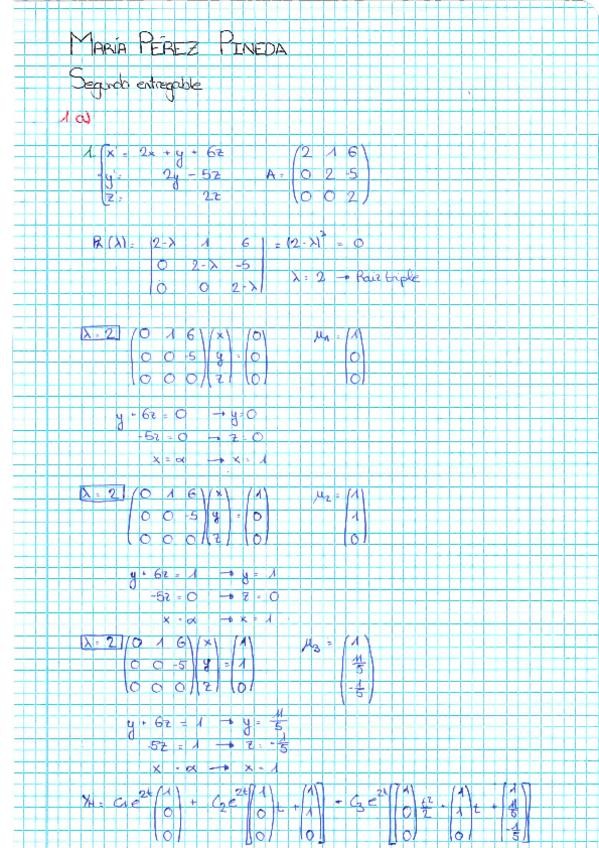 MARÍA PÉREZ PINEDA
Segundo entregable
1 a)
1. { x' = 2x + y + 6z
y' = 2y - 5z
z' = 2z
A = (2 1 6
0 2 -5
0 0 2)
P(λ) = |2-λ 1 6
0 2-λ -5
0 0 2-λ| = (2-λ)³ = 0
λ = 2 → Raiz triple
λ = 2 (0 1 6
0 0 -5
0 0 0) (x
y
z) = (0
0
0) μ₁ = (1
0
0)
y + 6z = 0 → y = 0
-5z = 0 → z = 0
x = α → x = 1
λ = 2 (0 1 6
0 0 -5
0 0 0) (x
y
z) = (1
0
0) μ₂ = (1
1
0)
y + 6z = 1 → y = 1
-5z = 0 → z = 0
x = α → x = 1
λ = 2 (0 1 6
0 0 -5
0 0 0) (x
y
z) = (1
1
0) μ₃ = (1
11/5
-1/5)
y + 6z = 1 → y = 11/5
5z = 1 → z = -1/5
x = α → x = 1
X_H = C₁e^{2t} (1
0
0) + C₂e^{2t} [(1
0
0) t + (1
1
0)] + C₃e^{2t} [(1
0
0) t²/2 + (1
1
0) t + (1
11/5
-1/5)]